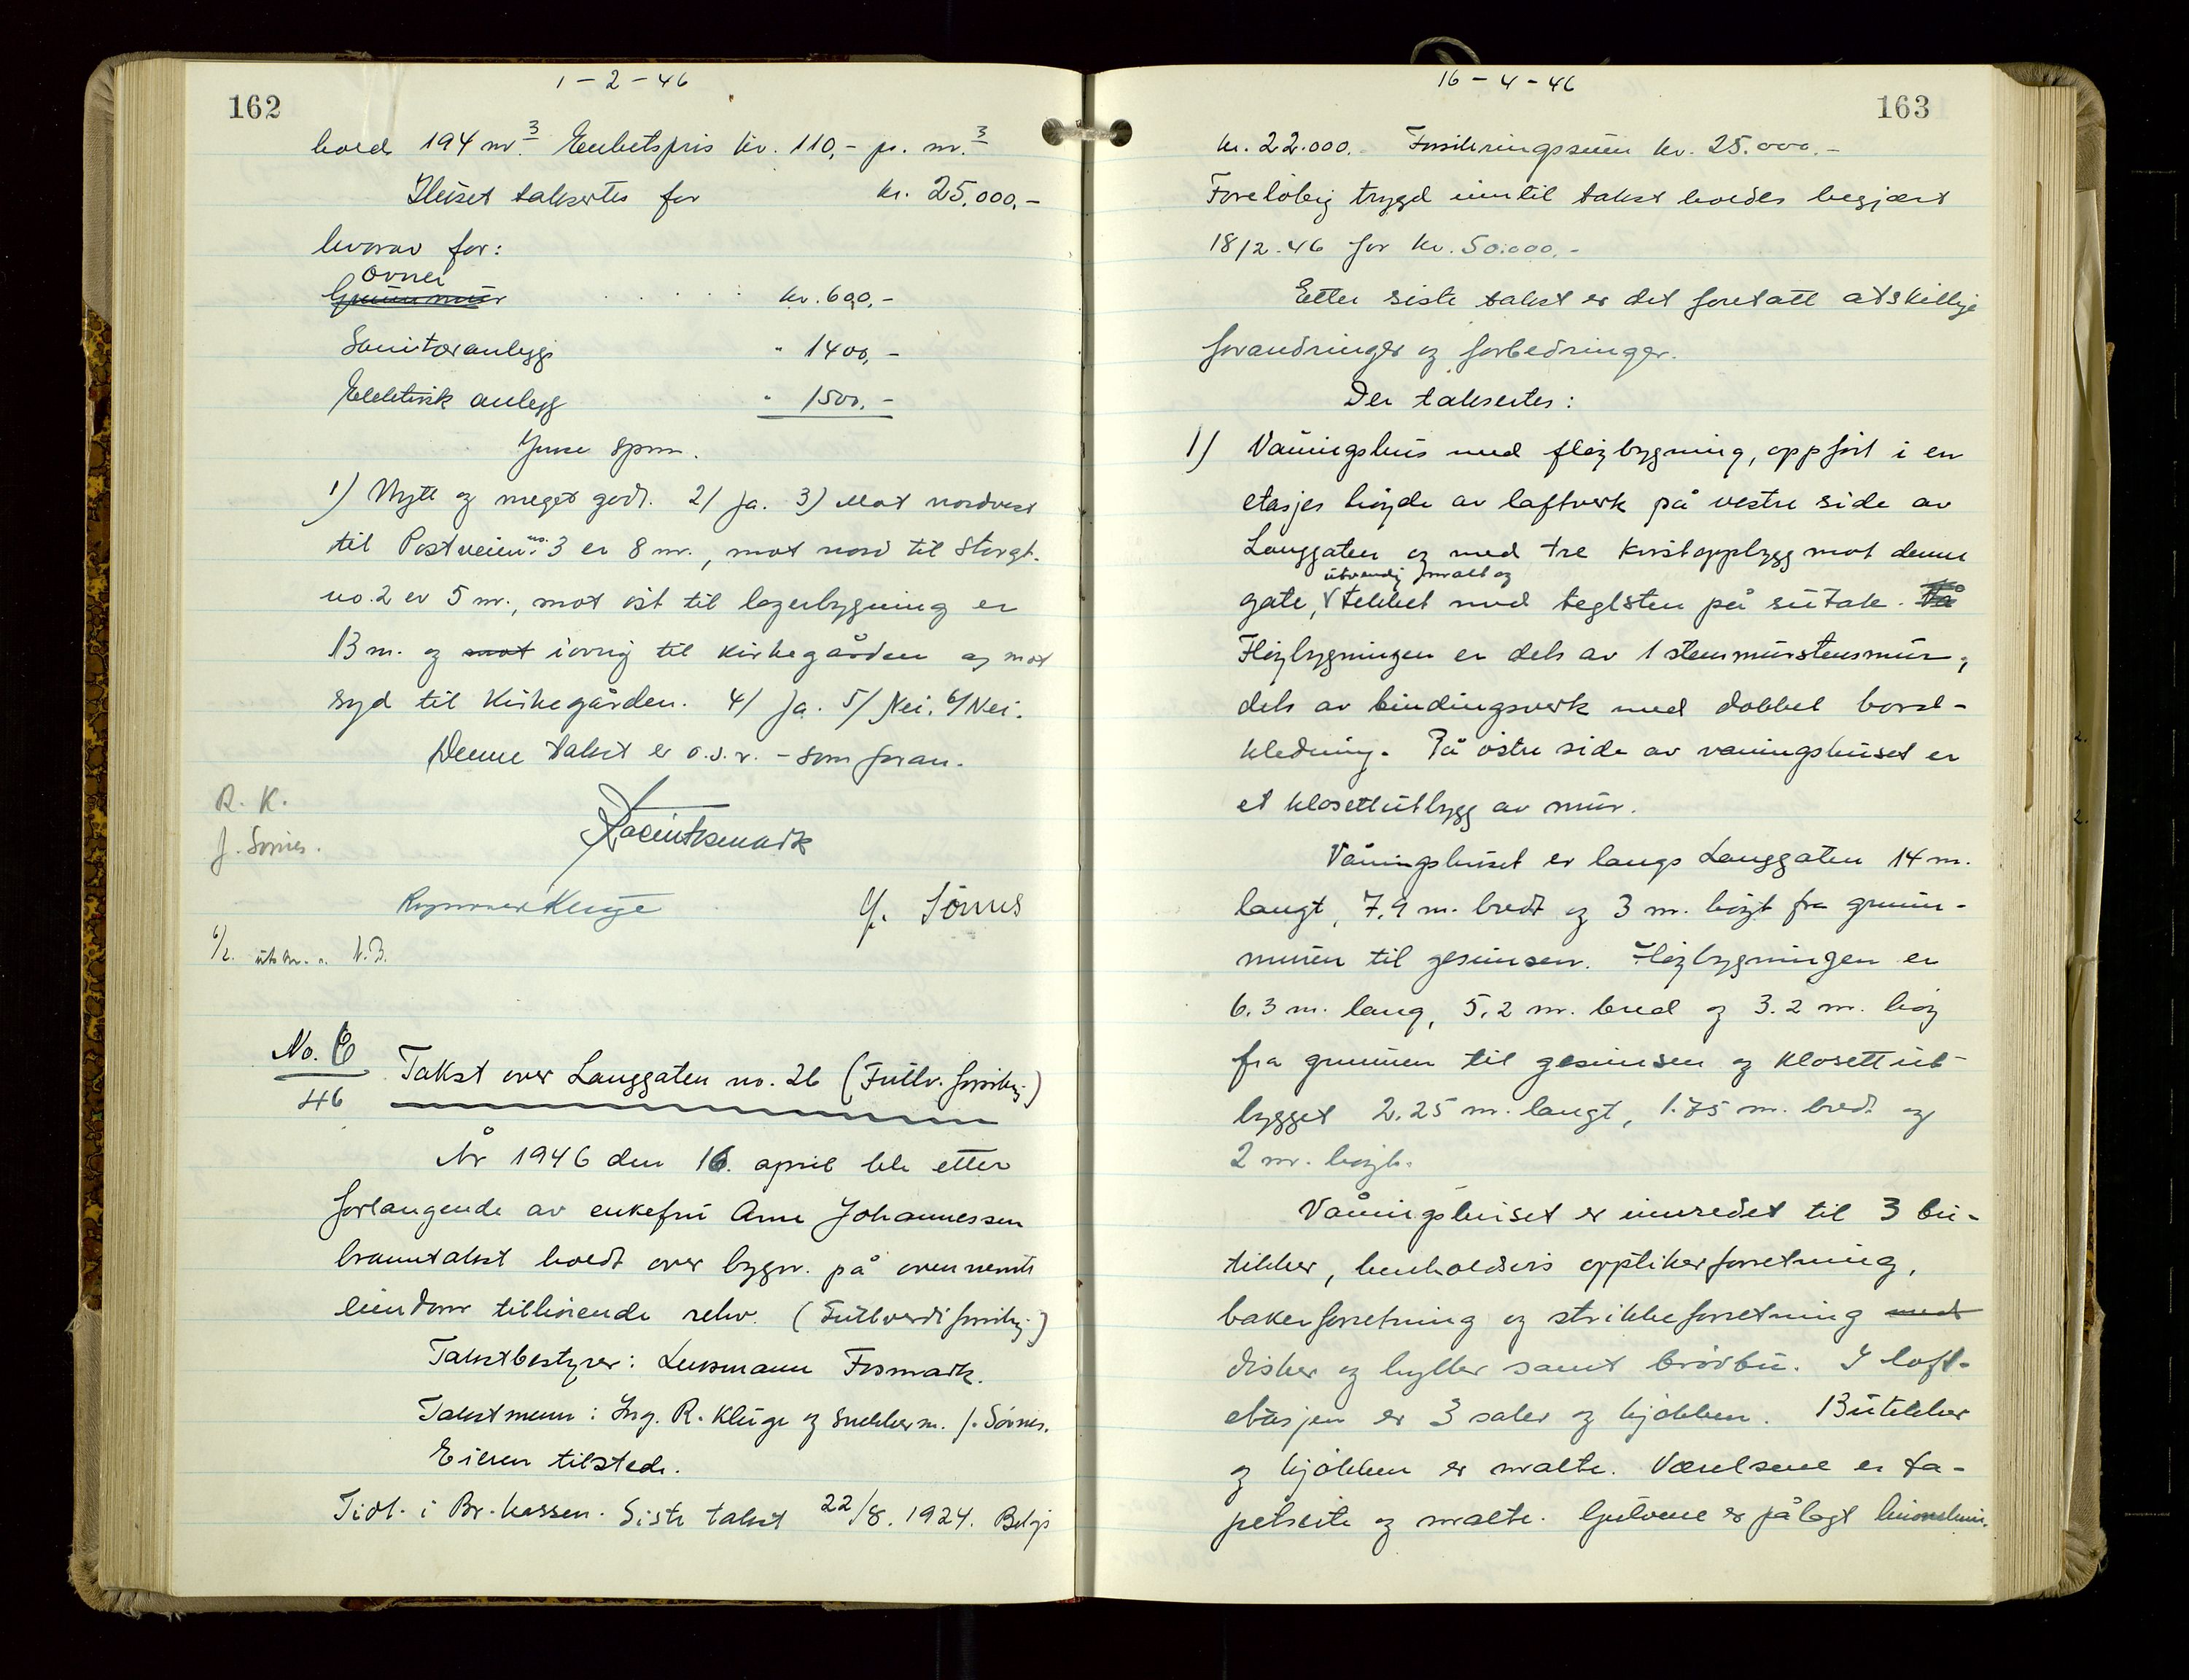 162
1 - 2 - 46
hold 194 m³. Enhetspris kr. 110,- pr. m.³
Huset takseres for kr. 25,000,-
hvorav for:
Ovner
Grunnmur . . . . . kr. 600,-
Sanitæranlegg " 1400,-
Elektrisk anlegg " 1500.-
Ymse spm.
1) Nytt og meget godt. 2/ Ja. 3) Mot nordvest
til Postveien no. 3 er 8 m., mot nord til Storgt.
no. 2 er 5 m., mot öst til lagerbygning er
13 m. og mot iövrig til kirkegården og mot
syd til Kirkegården. 4/ Ja. 5/ Nei. 6/ Nei.
Denne takst er o.s.v. - som foran.
R. K.
J. Sörnes.
Ragnvald Kluge
J. Sörnes
6/2. utskr. " N.B.
No. 6
46
Takst over Langgaten no. 26 (Fullv. forsikr.)
År 1946 den 16. april ble etter
forlangende av enkefru Arne Johannessen
branntakst holdt over bygn. på ovennevnte
eiendom tilhörende rekv. (Fullverdiforsikr.)
Takstbestyrer: Lensmann Fosmark.
Takstmenn: Ing. R. Kluge og snekkerm. J. Sörnes.
Eieren tilstede.
Tidl. i Br.kassen. Siste takst 22/8. 1924. Belöp
16 - 4 - 46
163
kr. 22.000.- Forsikringssum kr. 25.000.-
Forelöbig trygd inntil takst holdes begjært
18/2-46 for kr. 50.000.-
Etter siste takst er det foretatt atskillige
forandringer og forbedringer.
Der takseres:
1) Våningshus med flöybygning, oppfört i en
etasjes höyde av laftverk på vestre side av
Langgaten og med tre kvistoppbygg mot denne
utvendig malt og
gate, tekket med teglsten på sutak. På
Flöybygningen er dels av 1 stens murstensmur,
dels av bindingsverk med dobbel bord-
kledning. På östre side av våningshuset er
et klosettutbygg av mur.
Våningshuset er langs Langgaten 14 m.
langt, 7.9 m. bredt og 3 m. höyt fra grunn-
muren til gesimsen. Flöybygningen er
6.3 m. lang, 5.2 m. bred og 3.2 m. höy
fra grunnen til gesimsen og klosettut-
bygget 2.25 m. langt, 1.75 m. bredt og
2 m. höyt.
Våningshuset er innredet til 3 bu-
tikker, henholdsvis opptikerforretning,
bakerforretning og strikkeforretning med
disker og hyller samt brödbu. I loft-
etasjen er 3 saler og kjökken. Butikker
og kjökken er malte. Værelsene er ta-
petserte og malte. Gulvene er pålagt linoleum.